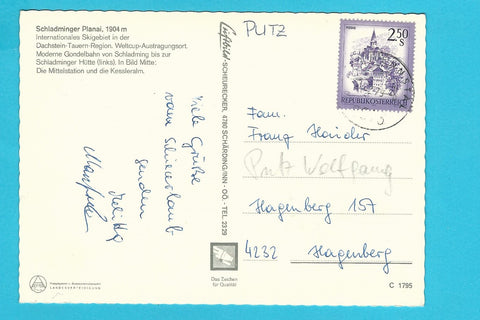 Schladminger Planai, 1904 m
Internationales Skigebiet in der
Dachstein-Tauern-Region. Weltcup-Austragungsort.
Moderne Gondelbahn von Schladming bis zur
Schladminger Hütte (links). In Bild Mitte:
Die Mittelstation und die Kessleralm.
PUTZ
2.50
S
REPUBLIK ÖSTERREICH
Luftbild-SCHEURECKER, 4780 SCHÄRDING/INN - OÖ. - TEL 2329
Viele Grüße
vom Schiurlaub
senden
Melitta
Manfred
Fam.
Franz Haider
Putz Wolfgang
Hagenberg 157
4232 Hagenberg
Das Zeichen
für Qualität
C 1795